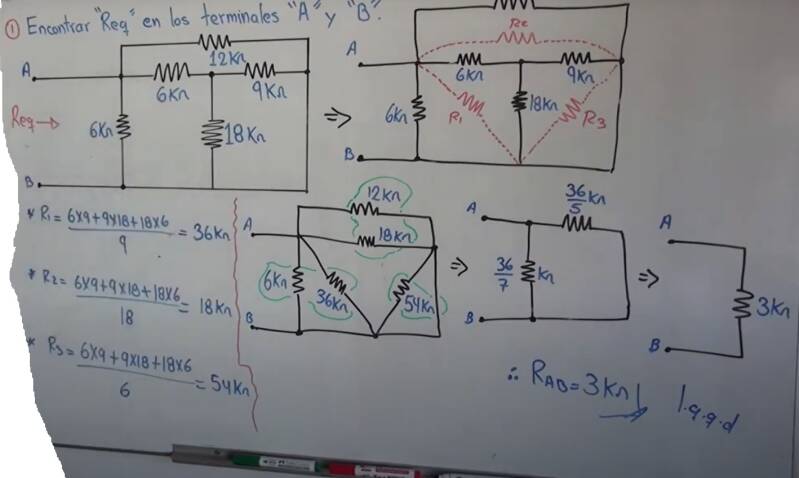 ① Encontrar "Req" en los terminales "A" y "B".
A
12KΩ
6KΩ
9KΩ
Req→
6KΩ
18KΩ
B
⇒
A
R2
6KΩ
9KΩ
6KΩ
R1
18KΩ
R3
B
* R1 = 6x9+9x18+18x6 / 9 = 36KΩ
* R2 = 6x9+9x18+18x6 / 18 = 18KΩ
* R3 = 6x9+9x18+18x6 / 6 = 54KΩ
A
12KΩ
18KΩ
6KΩ
36KΩ
54KΩ
B
⇒
A
36/5 KΩ
36/7 KΩ
B
⇒
A
3KΩ
B
∴ RAB = 3KΩ
l.q.q.d